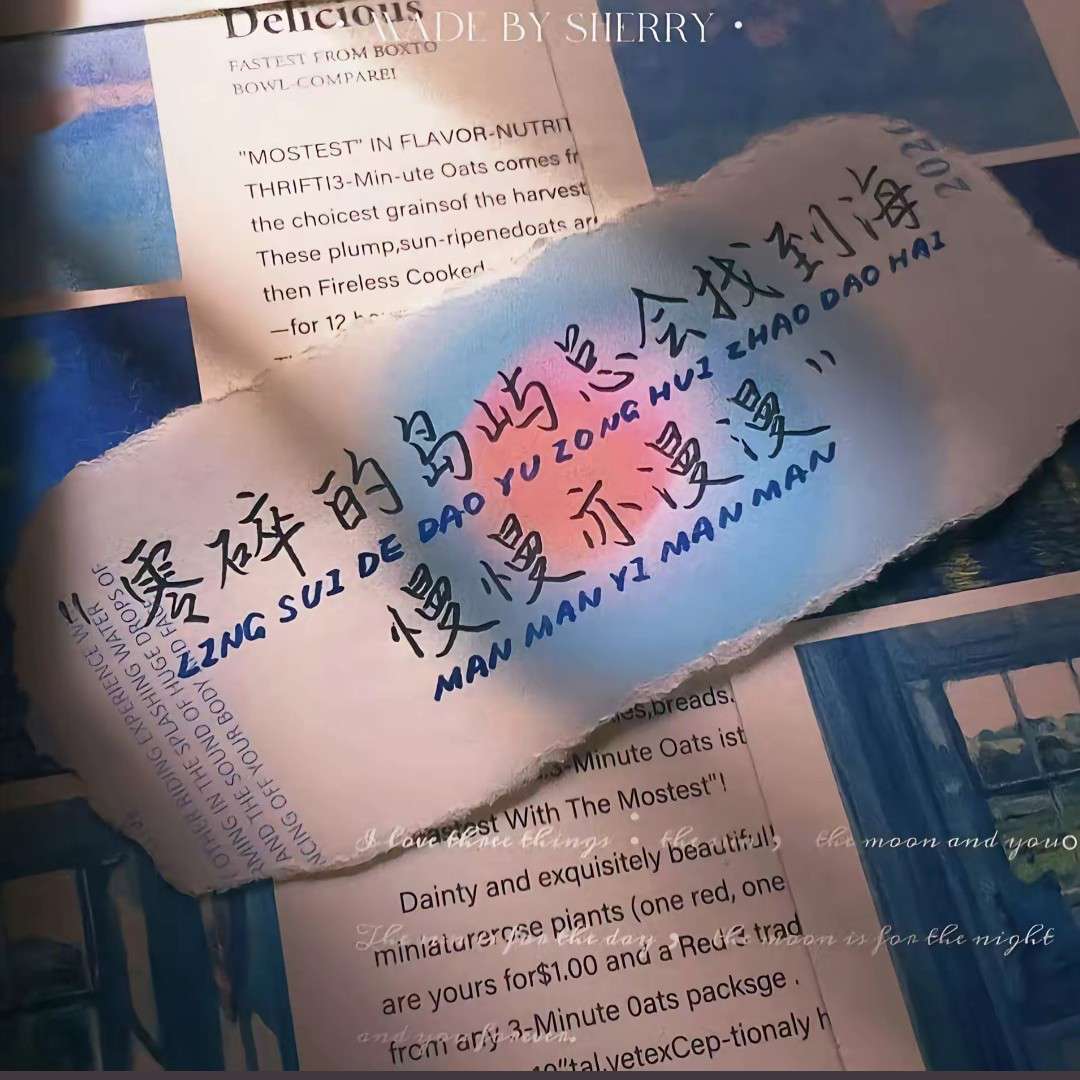 Delicious
WADE BY SHERRY •
FASTEST FROM BOXTO
BOWL-COMPARE!
"MOSTEST" IN FLAVOR-NUTRIT
THRIFTI3-Min-ute Oats comes fr
the choicest grainsof the harvest
These plump,sun-ripenedoats ar
then Fireless Cooked
—for 12
202
"零碎的岛屿总会找到海
LING SUI DE DAO YU ZONG HUI ZHAO DAO HAI
慢慢亦漫漫"
MAN MAN YI MAN MAN
OTHER RIDING EXPERIENCE W
MING IN THE SPLASHING WATER
AND THE SOUND OF HUGE DROPS OF
NCING OFF YOUR BODY ND FACE
es,breads.
3-Minute Oats ist
With The Mostest"!
I love three things • the , the moon and you
Dainty and exquisitely beautiful!
miniaturerose piants (one red, one
The for the day , the moon is for the night
are yours for$1.00 and a Red trad
from any 3-Minute 0ats packsge .
and you forever.
tal,yetexCep-tionaly h